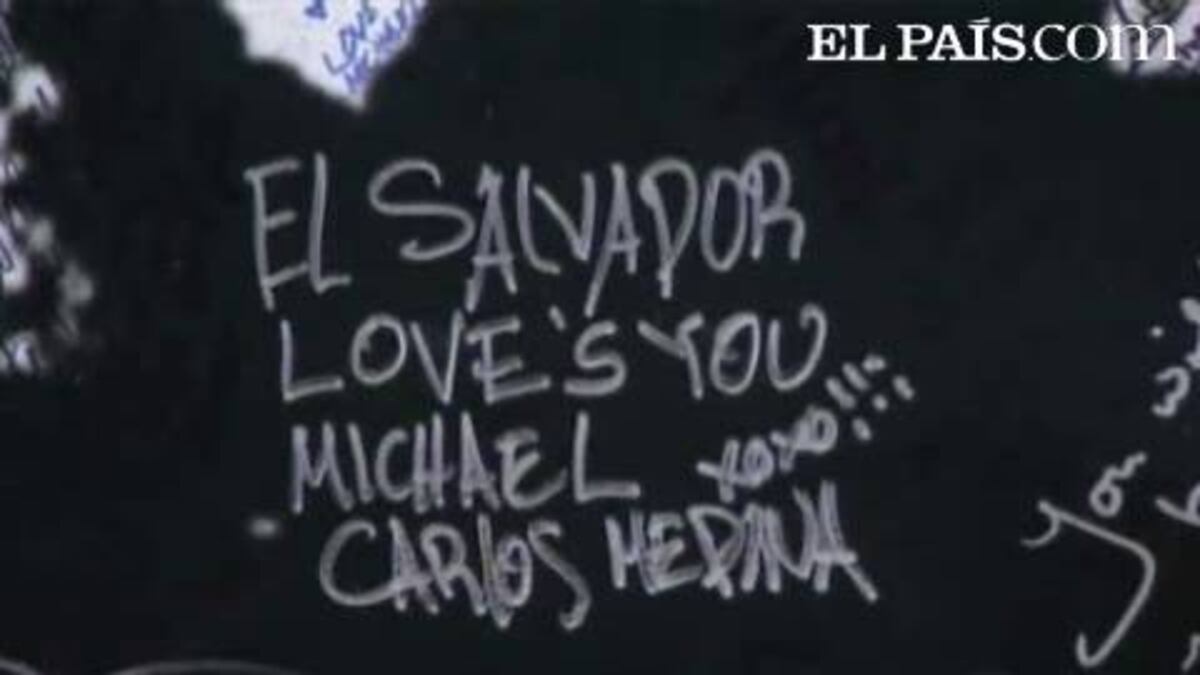 EL PAÍS.com
LOVE
EL SALVADOR
LOVE'S YOU
MICHAEL xoxo!!!
CARlOS MEDINA